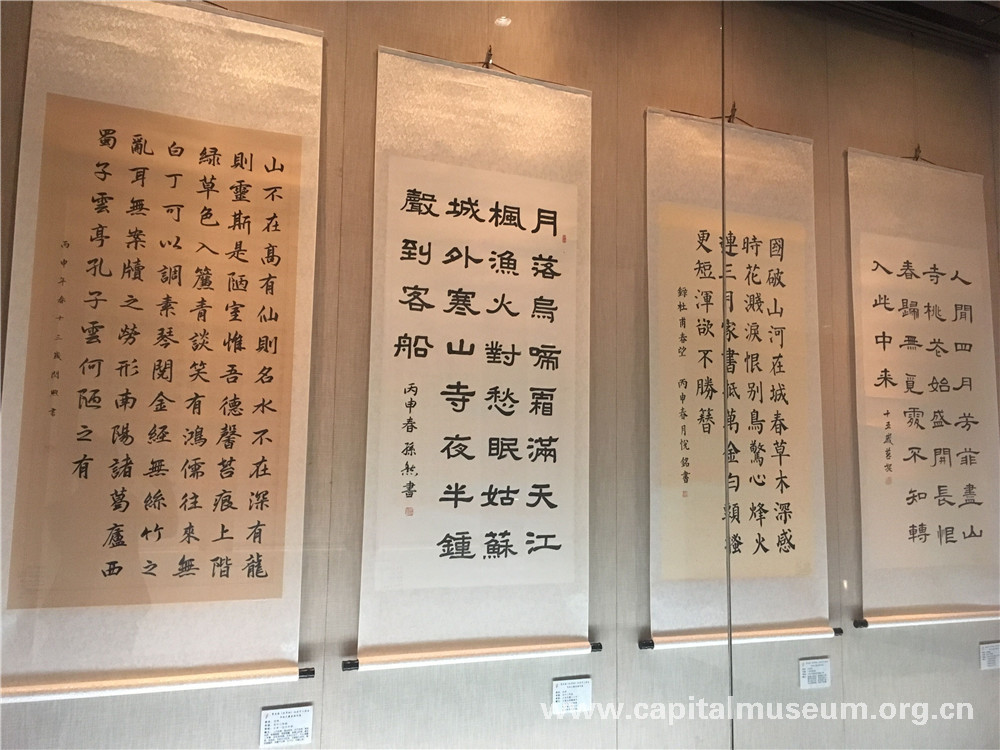 山不在高有仙則名水不在深有龍
則靈斯是陋室惟吾德馨苔痕上階
綠草色入簾青談笑有鴻儒往來無
白丁可以調素琴閱金經無絲竹之
亂耳無案牘之勞形南陽諸葛廬西
蜀子雲亭孔子雲何陋之有
丙申年春十三歲書
月落烏啼霜滿天江
楓漁火對愁眠姑蘇
城外寒山寺夜半鍾
聲到客船
丙申春孫然書
國破山河在城春草木深感
時花濺淚恨別鳥驚心烽火
連三月家書抵萬金白頭搔
更短渾欲不勝簪
錄杜甫春望 丙申春月悅銘書
人間四月芳菲盡山
寺桃花始盛開長恨
春歸無覓處不知轉
入此中来
十五歲
www.capitalmuseum.org.cn